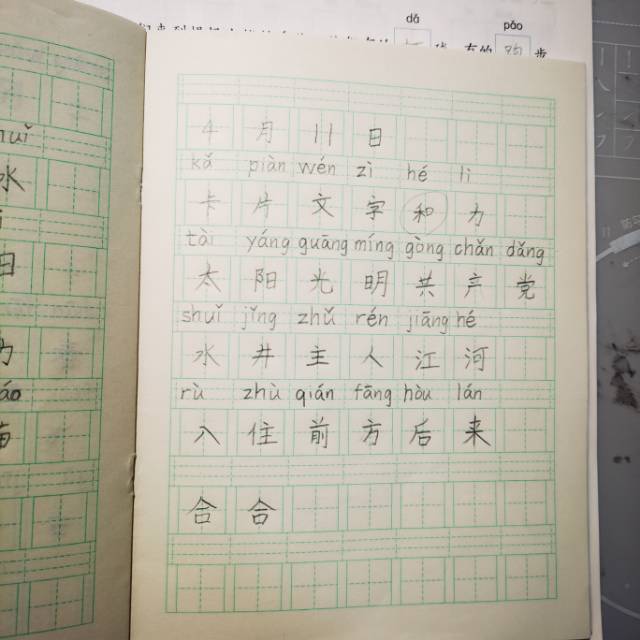 dá pǎo
有的 步
4月11日
kǎ piàn wén zì hé lì
卡片文字和力
tài yáng guāng míng gòng chǎn dǎng
太阳光明共产党
shuǐ jǐng zhǔ rén jiāng hé
水井主人江河
rù zhù qián fāng hòu lán
入住前方后来
合合